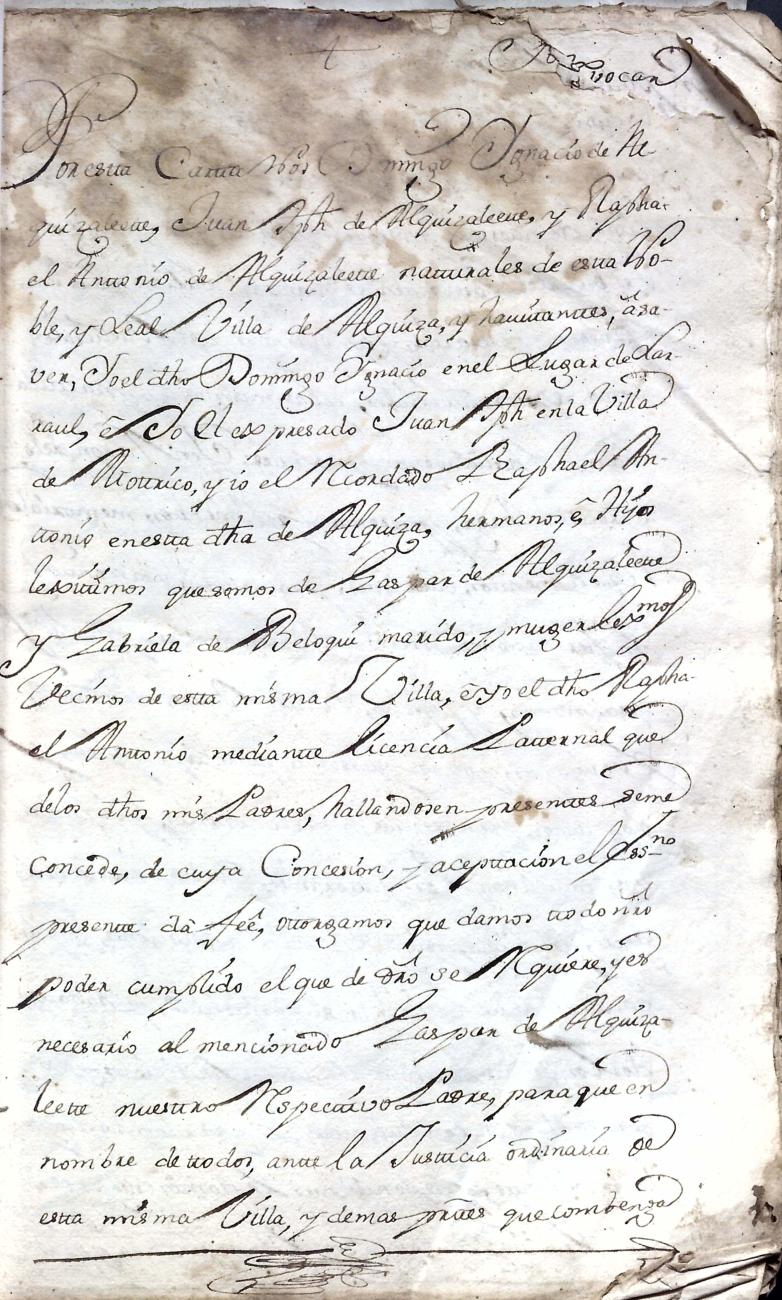 Por esta Carta Nos Domingo Ygnacio de Al-
quizaleete, Juan Jph de Alquizaleete, y Rapha-
el Antonio de Alquizaleete naturales de esta No-
ble, y Leal Villa de Alquiza, y havitantes, âsa-
ver, Yo el dho Domingo Ygnacio en el Lugar de Lar-
raul, ê Yo El expresado Juan Jph en la Villa
de Motrico, y io el Recordado Raphael An-
tonio en esta dha de Alquiza, hermanos, ê Hijos
lexitimos que somos de Gaspar de Alquizaleete
y Gabriela de Beloqui marido, y muger lexmos
Vecinos de esta misma Villa, ê yo el dho Rapha-
el Antonio mediante licencia Paternal que
delos dhos mis Padres, hallandosen presentes seme
Concede, de cuya Concesion, y aceptacion el Essno
presente dâ feê, otorgamos que damos todo nrô
poder cumplido el que de drô se Requiere, y es
necesario al mencionado Gaspar de Alquiza-
leete nuestro Respectivo Padre, para que en
nombre de todos, ante la Justicia ordinaria de
esta misma Villa, y demas prtes que combenga